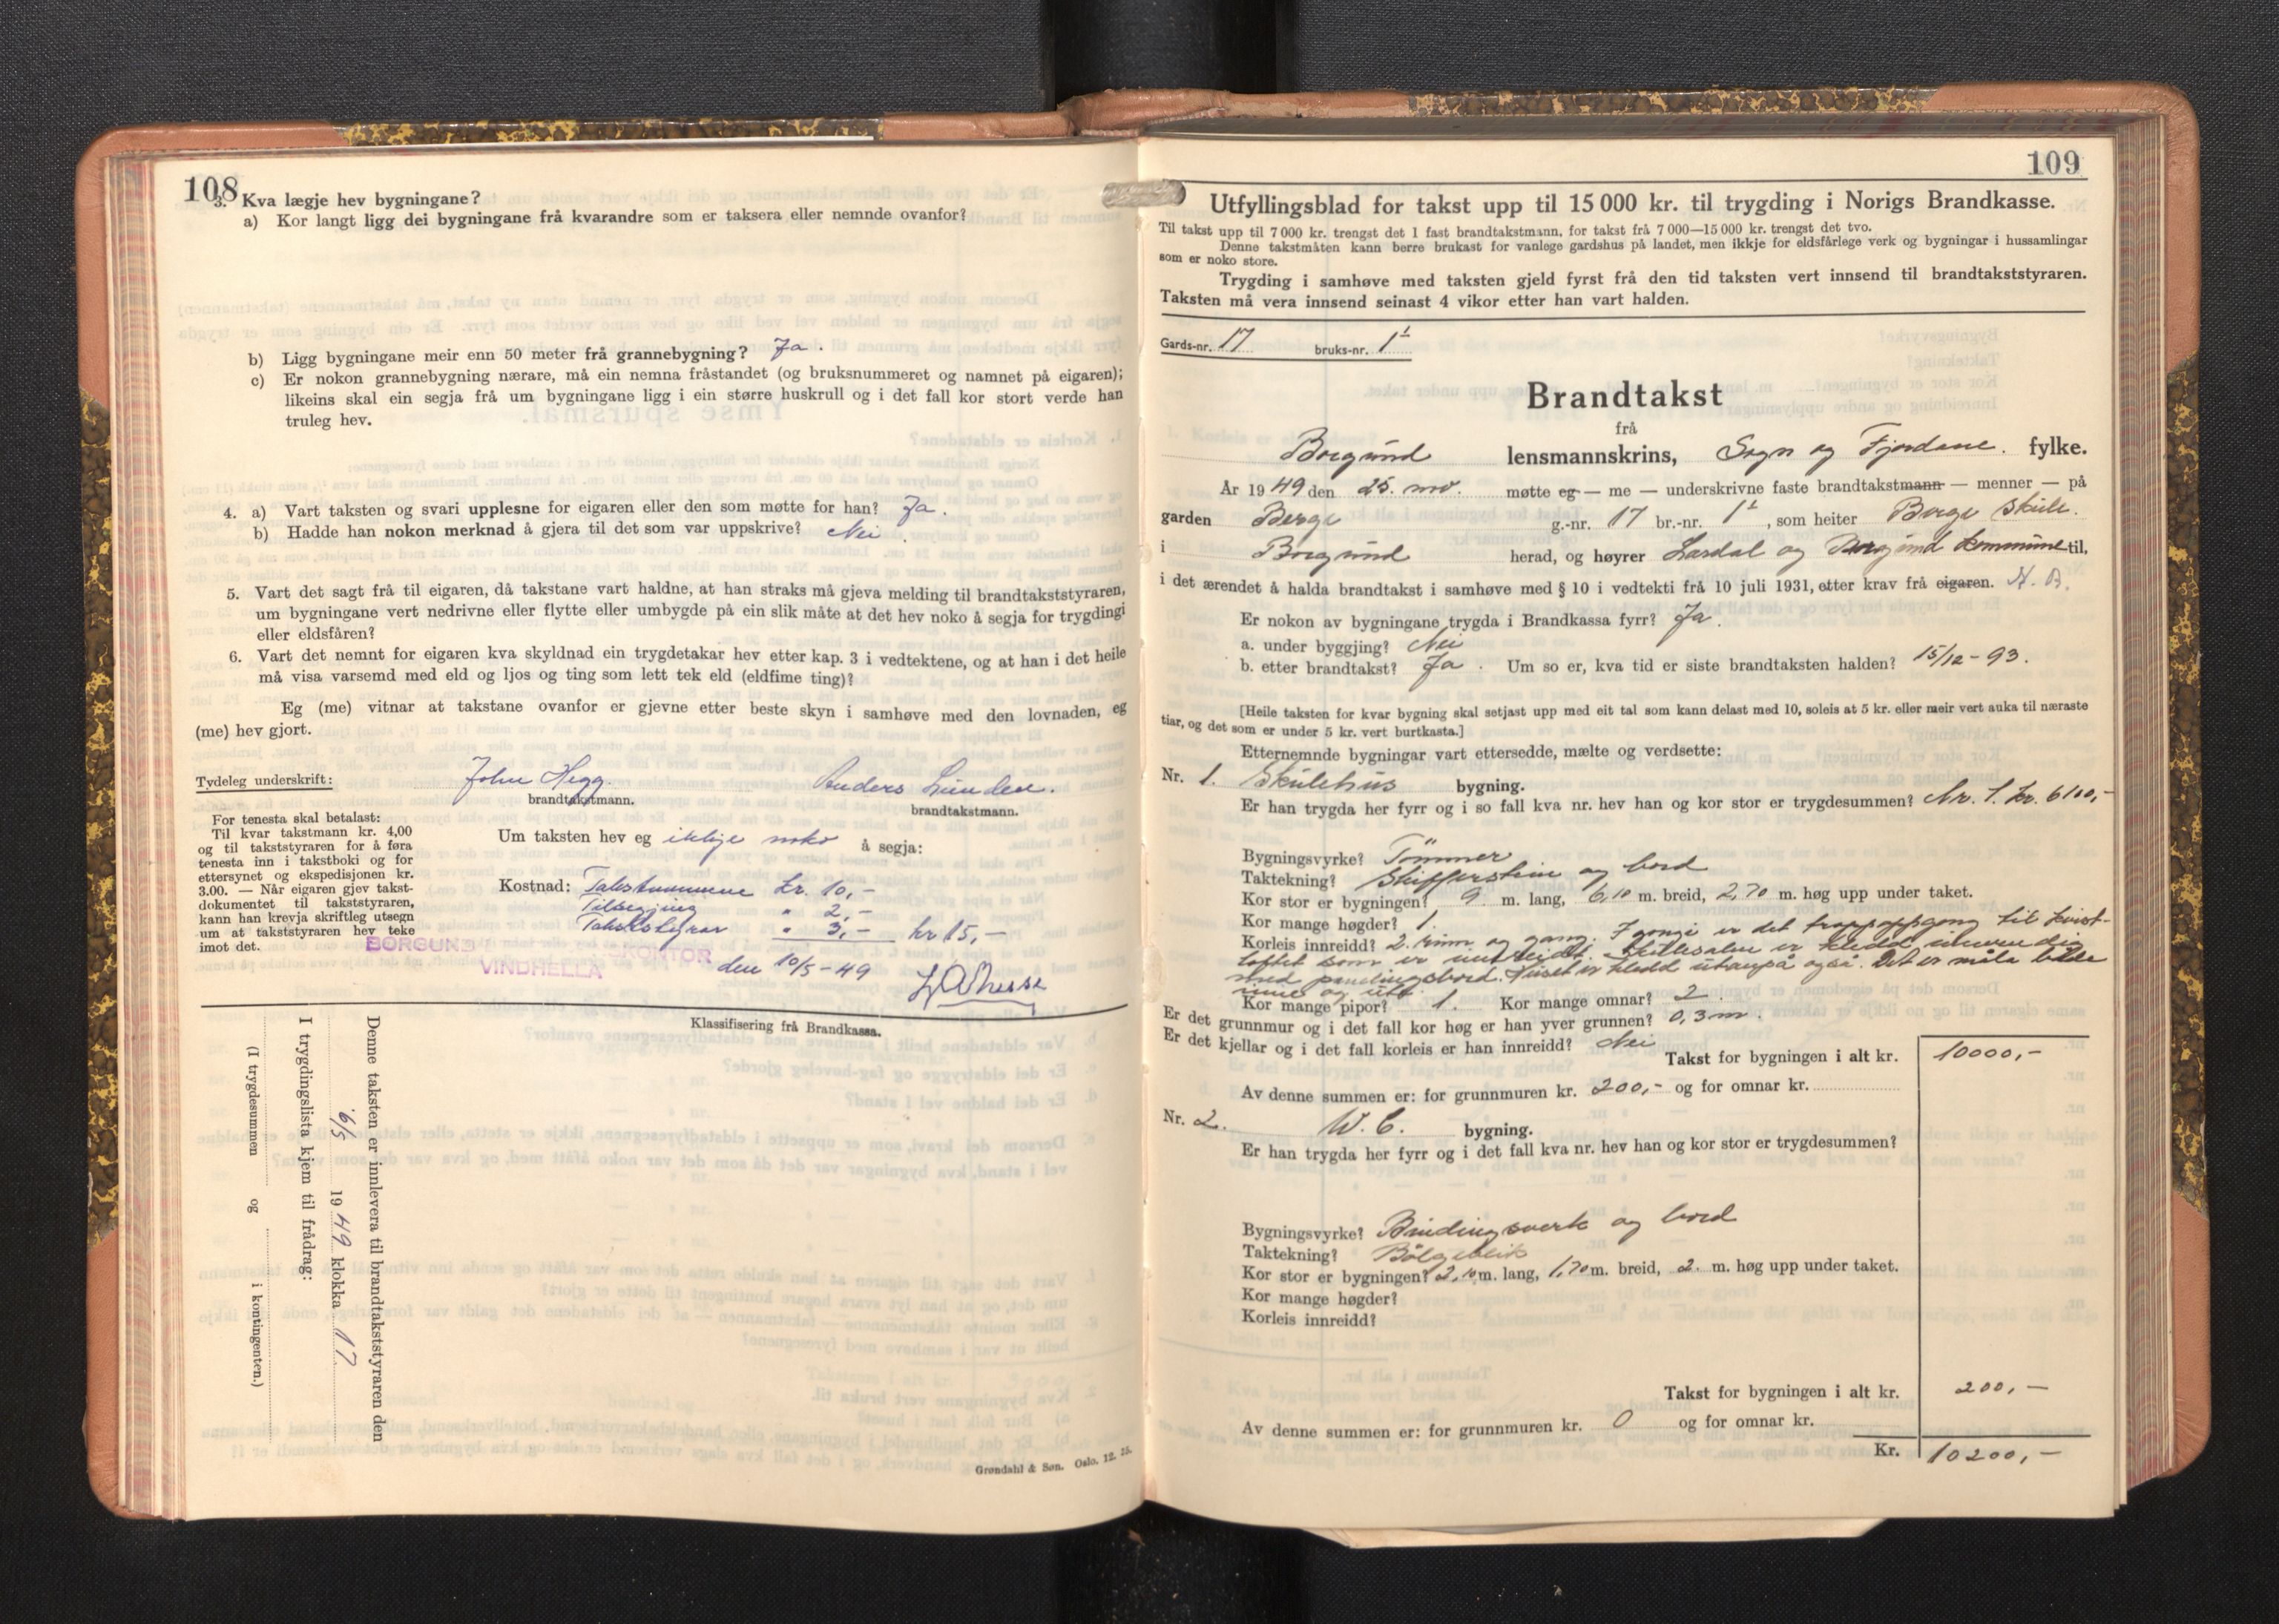 108
3. Kva lægje hev bygningane?
a) Kor langt ligg dei bygningane frå kvarandre som er taksera eller nemnde ovanfor?
b) Ligg bygningane meir enn 50 meter frå grannebygning? Ja.
c) Er nokon grannebygning nærare, må ein nemna fråstandet (og bruksnummeret og namnet på eigaren);
likeins skal ein segja frå um bygningane ligg i ein større huskrull og i det fall kor stort verde han
truleg hev.
4. a) Vart taksten og svari upplesne for eigaren eller den som møtte for han? Ja.
b) Hadde han nokon merknad å gjera til det som var uppskrive? Nei.
5. Vart det sagt frå til eigaren, då takstane vart haldne, at han straks må gjeva melding til brandtakststyraren,
um bygningane vert nedrivne eller flytte eller umbygde på ein slik måte at det hev noko å segja for trygdingi
eller eldsfåren?
6. Vart det nemnt for eigaren kva skyldnad ein trygdetakar hev etter kap. 3 i vedtektene, og at han i det heile
må visa varsemd med eld og ljos og ting som lett tek eld (eldfime ting)?
Eg (me) vitnar at takstane ovanfor er gjevne etter beste skyn i samhøve med den lovnaden, eg
(me) hev gjort.
Tydeleg underskrift: John Hegg. Anders Lunden.
brandtakstmann. brandtakstmann.
For tenesta skal betalast:
Til kvar takstmann kr. 4,00
og til takststyraren for å føra
tenesta inn i takstboki og for
ettersynet og ekspedisjonen kr.
3.00. — Når eigaren gjev takst-
dokumentet til takststyraren,
kann han krevja skriftleg utsegn
um at takststyraren hev teke
imot det.
Um taksten hev eg ikkje noko å segja:
Kostnad: Takstmennene kr. 10,-
" 2,-
" 3,- kr 15,-
BORGUND KONTOR
VINDHELLA
den 10/5-49
Klassifisering frå Brandkassa.
Denne taksten er innlevera til brandtakststyraren den
6/5 1949 klokka 17
I trygdingslista kjem til frådrag:
(I trygdesummen og i kontingenten.)
Grøndahl & Søn. Oslo. 12. 35.
109
Utfyllingsblad for takst upp til 15 000 kr. til trygding i Norigs Brandkasse.
Til takst upp til 7 000 kr. trengst det 1 fast brandtakstmann, for takst frå 7 000—15 000 kr. trengst det tvo.
Denne takstmåten kann berre brukast for vanlege gardshus på landet, men ikkje for eldsfårlege verk og bygningar i hussamlingar
som er noko store.
Trygding i samhøve med taksten gjeld fyrst frå den tid taksten vert innsend til brandtakststyraren.
Taksten må vera innsend seinast 4 vikor etter han vart halden.
Gards-nr. 17 bruks-nr. 1
Brandtakst
frå
Borgund lensmannskrins, Sogn og Fjordane. fylke.
År 1949 den 25. møtte eg — me — underskrivne faste brandtakstmann — menner — på
garden Berge g.-nr. 17 br.-nr. 1, som heiter Berge Skule.
i Borgund herad, og høyrer Lærdal og Borgund kommune til,
i det ærendet å halda brandtakst i samhøve med § 10 i vedtekti frå 10 juli 1931, etter krav frå eigaren. N. B.
Er nokon av bygningane trygda i Brandkassa fyrr? Ja.
a. under byggjing? Nei
b. etter brandtakst? Ja. Um so er, kva tid er siste brandtaksten halden? 15/12-93.
[Heile taksten for kvar bygning skal setjast upp med eit tal som kann delast med 10, soleis at 5 kr. eller meir vert auka til næraste
tiar, og det som er under 5 kr. vert burtkasta.]
Etternemnde bygningar vart ettersedde, mælte og verdsette:
Nr. 1. Skulehus bygning.
Er han trygda her fyrr og i so fall kva nr. hev han og kor stor er trygdesummen? Nr. 1. kr. 6100,-
Bygningsvyrke? Tömmer
Taktekning? Skifferstein og bord
Kor stor er bygningen? 9 m. lang, 6,10 m. breid, 2,70 m. høg upp under taket.
Kor mange høgder? 1.
Korleis innreidd? 2. rum og gang. I gangi er det trappoppgang til kvist-
loftet som er uinnreidt. Skulesalen er kledd innvendig
med panelingsbord. Huset er kledd utanpå også. Det er måla både
inne og ute.
Kor mange pipor? 1. Kor mange omnar? 2.
Er det grunnmur og i det fall kor høg er han yver grunnen? 0,3 m.
Er det kjellar og i det fall korleis er han innreidd? Nei
Takst for bygningen i alt kr. 10000,-
Av denne summen er: for grunnmuren kr. 200,- og for omnar kr.
Nr. 2. W. C. bygning.
Er han trygda her fyrr og i det fall kva nr. hev han og kor stor er trygdesummen?
Bygningsvyrke? Bindingsverk og bord
Taktekning? Bölgeblik
Kor stor er bygningen? 2,10 m. lang, 1,70 m. breid, 2. m. høg upp under taket.
Kor mange høgder?
Korleis innreidd?
Takst for bygningen i alt kr. 200,-
Av denne summen er: for grunnmuren kr. 0 og for omnar kr.
Kr. 10200,-